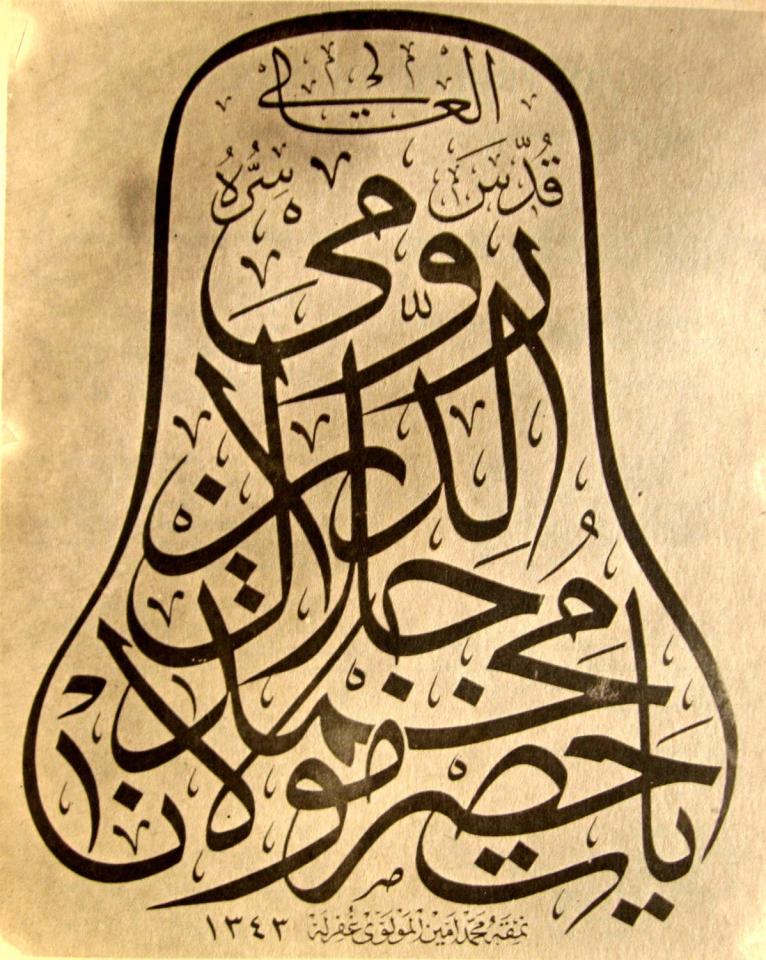 يا حضرت مولانا
محمد جلال
الدّين
رومى
قُدّسَ سِرُّهُ
العالى
نمقهُ محمّد امين المولوى غُفرله ١٣٤٣